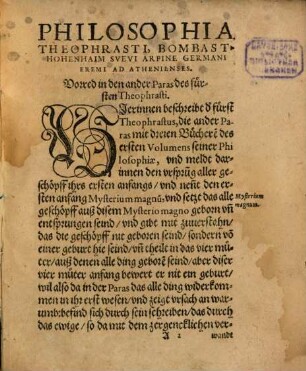 PHILOSOPHIA,
THEOPHRASTI, BOMBAST
HOHENHAIM SVEVI ARPINE GERMANI
EREMI AD ATHENIENSES.
Vorred in den ander Paras des für-
sten Theophrasti.
HIerinnen beschreibt d fürst
Theophrastus, die ander Pa-
ras mit dreien Büchern des
ersten Volumens seiner Phi
losophiæ, vnd melde dar-
innen den vrsprüg aller ge-
schöpff ihrs ersten anfangs / vnd nent den er-
sten anfang Mysterium magnū, vnd setzt das alle
geschöpff auß disem Mysterio magno geborn vñ
entsprungen seind / vnd gibt mit zuuerstahn /
das die geschöpff nit geboren seind / sondern vō
einer geburt hie seind / vñ theile in das vier müt-
ter / auß denen alle ding geborē seind / aber diser
vier müter anfang bewert er nit ein geburt /
wil also da in der Paras das alle ding widerkom-
men in ihr erst wesen / vnd zeigt vrsach an war-
umb: befind sich durch sein schreiben / das durch
das ewige / so da mit dem zergencklichen ver-
A 2 wandt
Mysterium
magnum.